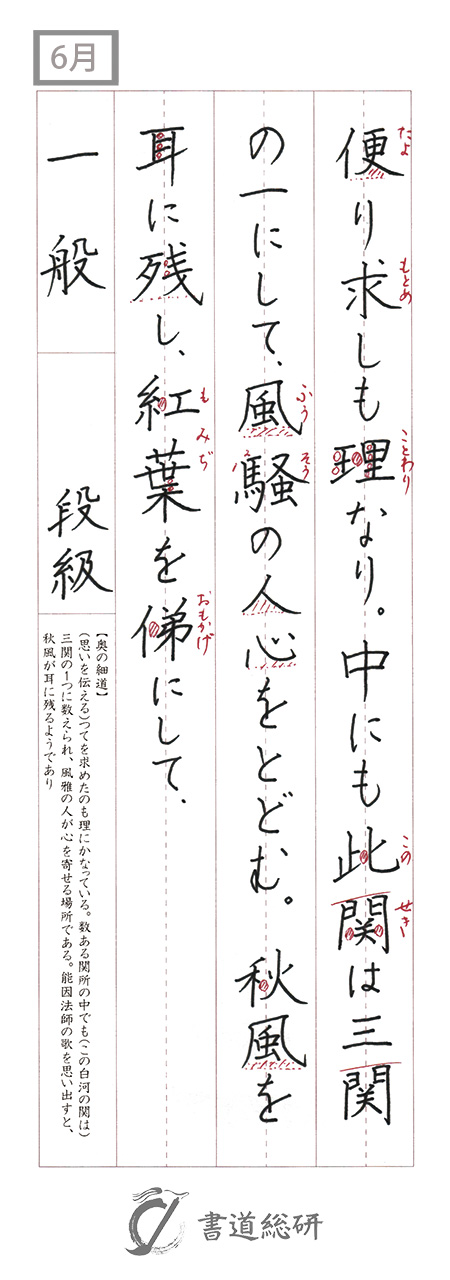 6月
便り求しも理なり。中にも此関は三関
たよ もとめ ことわり この せき
の一にして、風騒の人心をとどむ。秋風を
ふう そう
耳に残し、紅葉を俤にして、
もみぢ おもかげ
一般 段級
【奥の細道】
(思いを伝える)つてを求めたのも理にかなっている。数ある関所の中でも(この白河の関は)
三関の1つに数えられ、風雅の人が心を寄せる場所である。能因法師の歌を思い出すと、
秋風が耳に残るようであり
書道総研